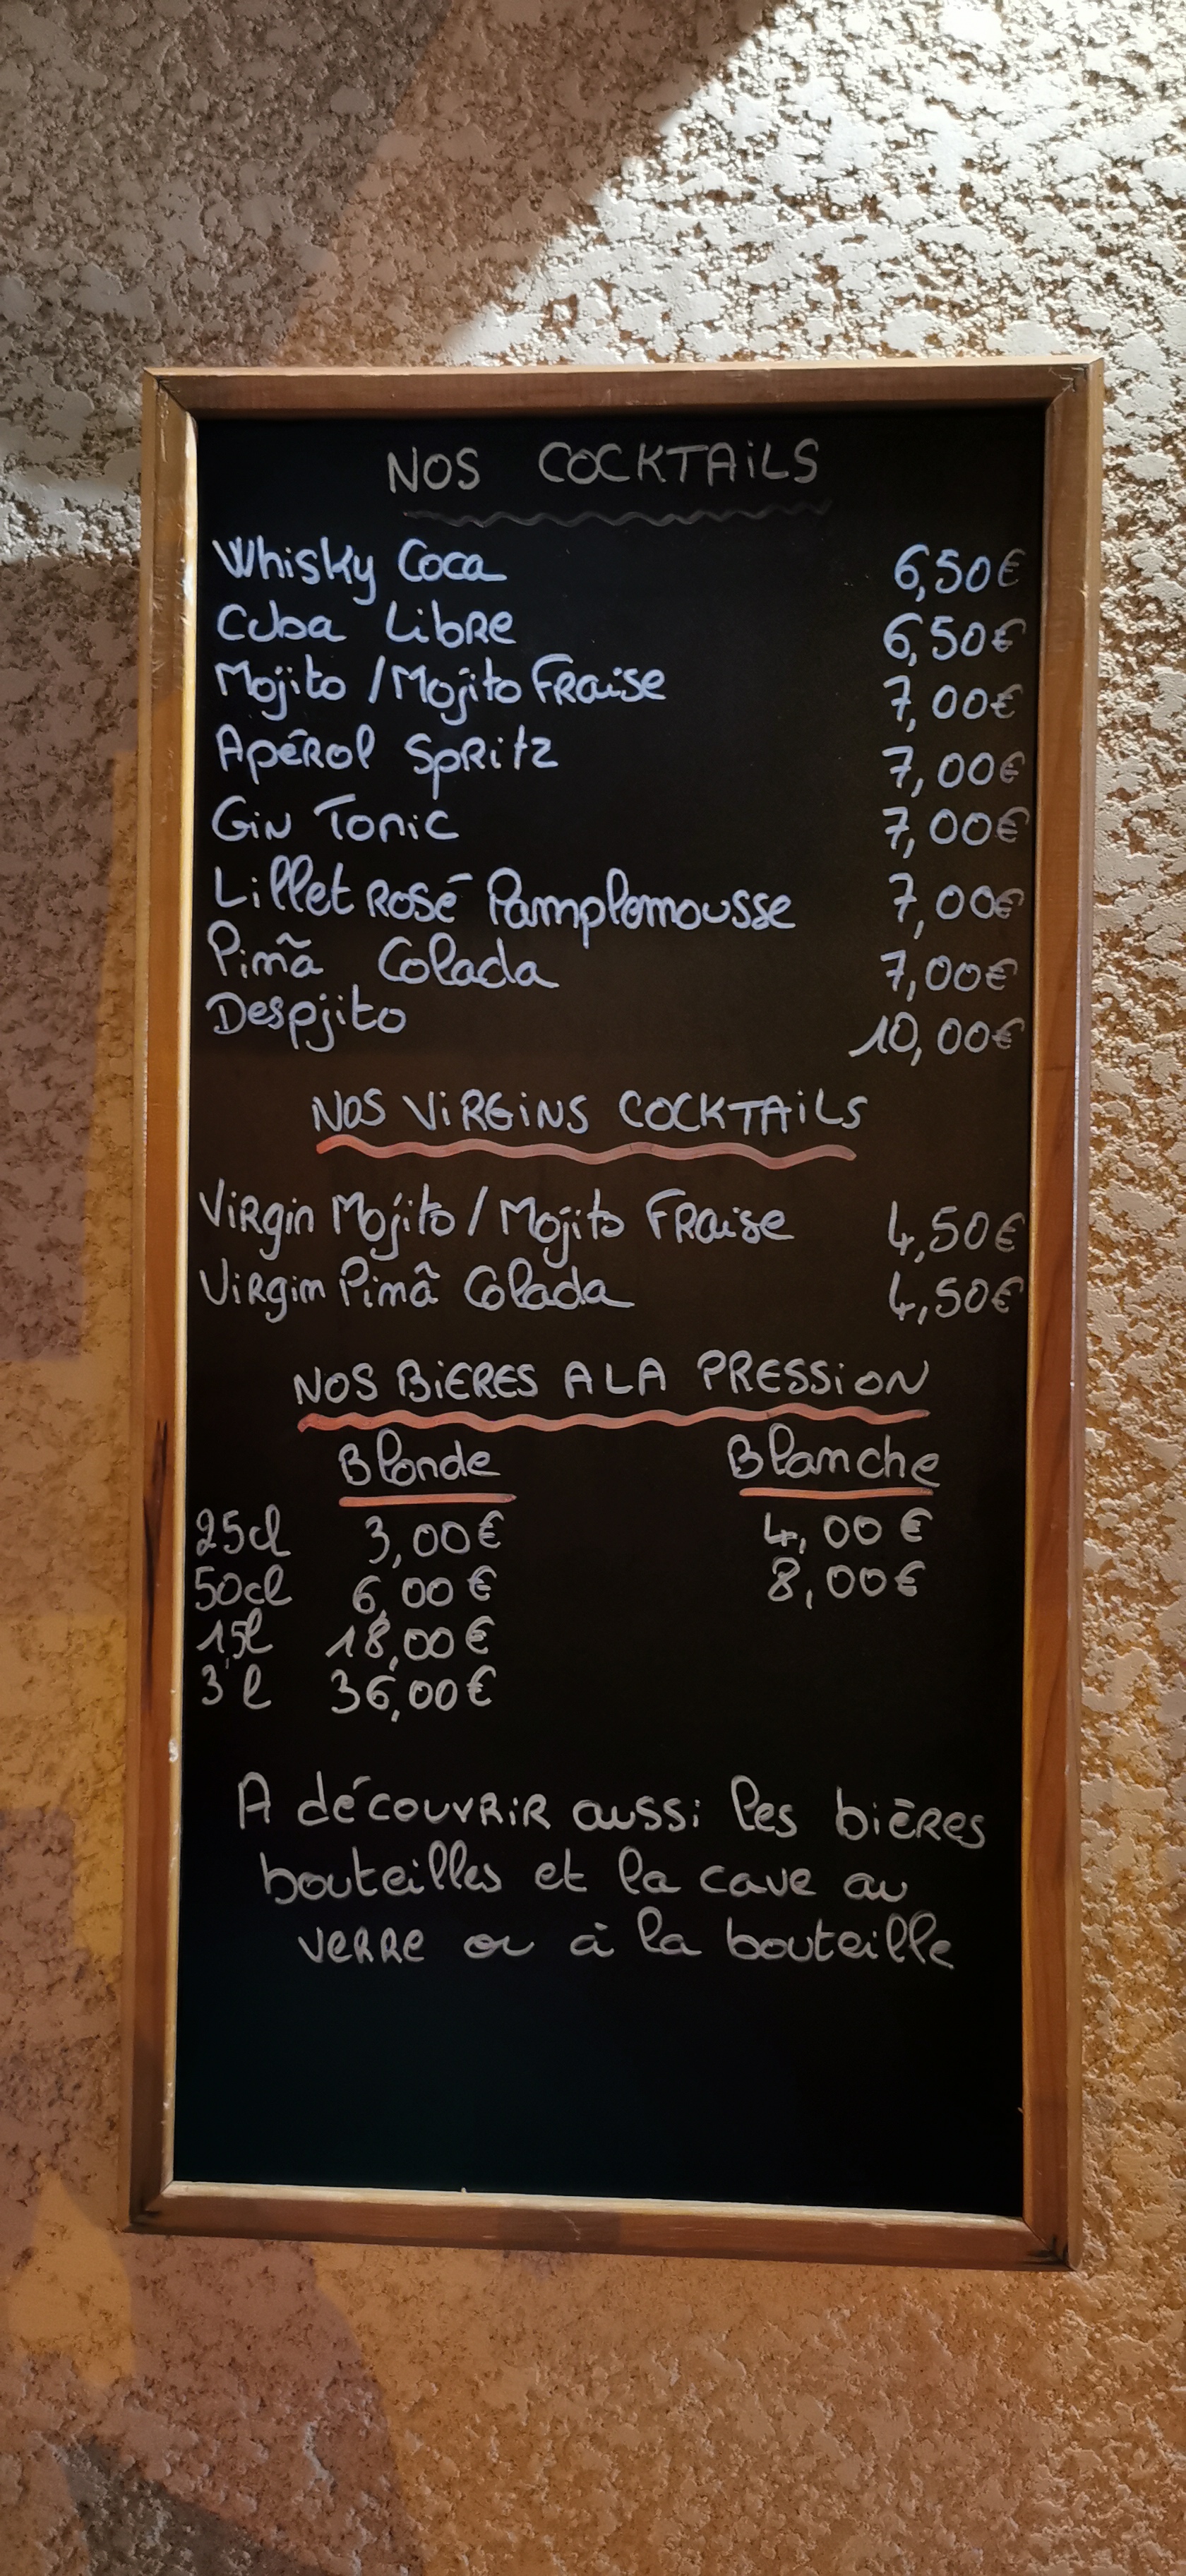 NOS COCKTAILS
Whisky Coca 6,50€
Cuba Libre 6,50€
Mojito / Mojito Fraise 7,00€
Apérol Spritz 7,00€
Gin Tonic 7,00€
Lillet Rosé Pamplemousse 7,00€
Pinã Colada 7,00€
Despjito 10,00€
NOS VIRGINS COCKTAILS
Virgin Mojito / Mojito Fraise 4,50€
Virgin Pinã Colada 4,50€
NOS BIERES A LA PRESSION
Blonde Blanche
25cl 3,00€ 4,00€
50cl 6,00€ 8,00€
1,5l 18,00€
3l 36,00€
A découvrir aussi les bières
bouteilles et la cave au
verre ou à la bouteille